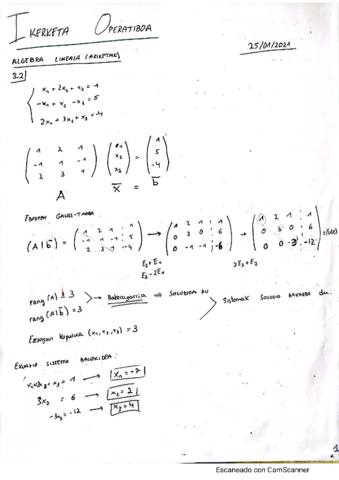 IKERKETA OPERATIBOA
25/01/2021
ALGEBRA LINEALA (ARIKETAK)
3.2)
x₁ + 2x₂ + x₃ = 1
-x₁ + x₂ - x₃ = 5
2x₁ + 3x₂ + x₃ = -4
( 1 2 1 ) ( x₁ ) ( 1 )
( -1 1 -1 ) ( x₂ ) = ( 5 )
( 2 3 1 ) ( x₃ ) ( -4 )
A x̄ = b̄
(A|b̄) = ( 1 2 1 | 1 ) → ( 1 2 1 | 1 ) → ( 1 2 1 | 1 )
( -1 1 -1 | 5 ) ( 0 3 0 | 6 ) ( 0 3 0 | 6 )
( 2 3 1 | -4 ) ( 0 -1 -1 | -6 ) ( 0 0 -3 | -12 )
E₂+E₁
E₃-2E₁
3E₃+E₂
rang (A) = 3
rang (A|b̄) = 3
Bateragarria ⇒ SOLUZIOA DU
Sistemak soluzio bakarra du.
Ezezagun kopurua (x₁, x₂, x₃) = 3
EKUAZIO SISTEMA BALIOKIDEA:
x₁+2x₂+x₃ = 1 → x₁ = -7
3x₂ = 6 → x₂ = 2
-3x₃ = -12 → x₃ = 4
1
Escaneado con CamScanner